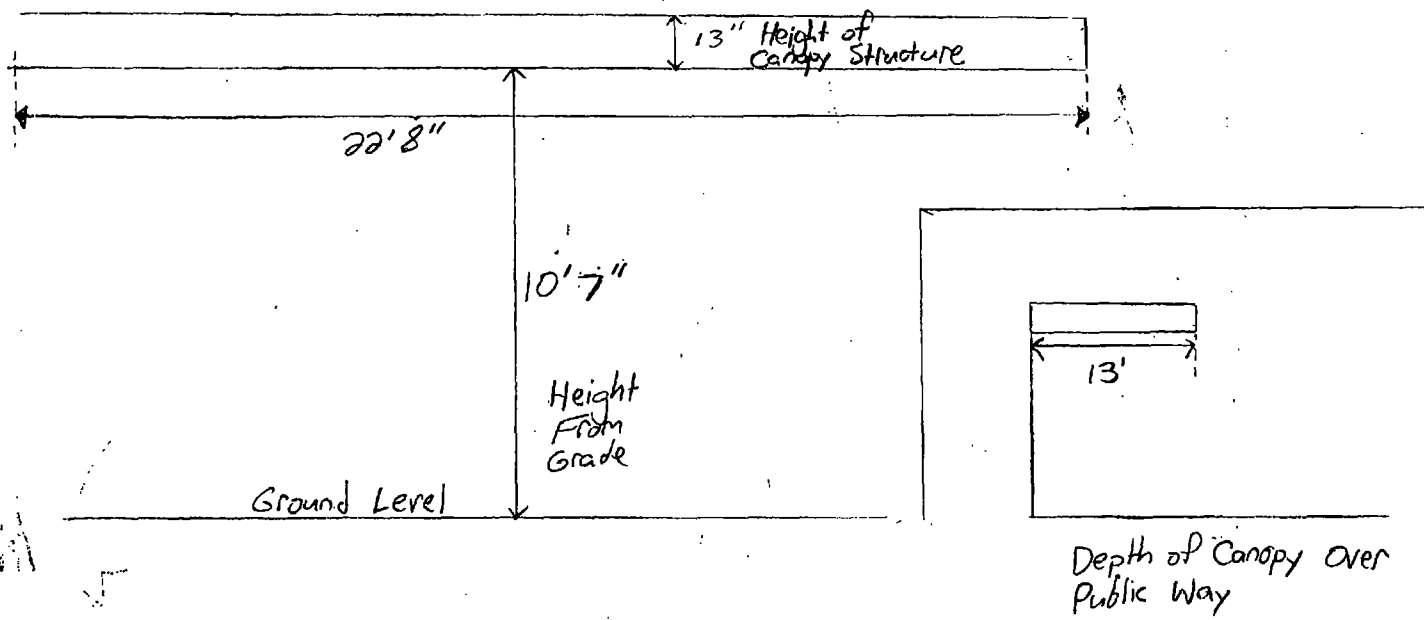 13" Height of
Canopy Structure
22'8"
10'7"
Height
From
Grade
Ground Level
13'
Depth of Canopy Over
Public Way